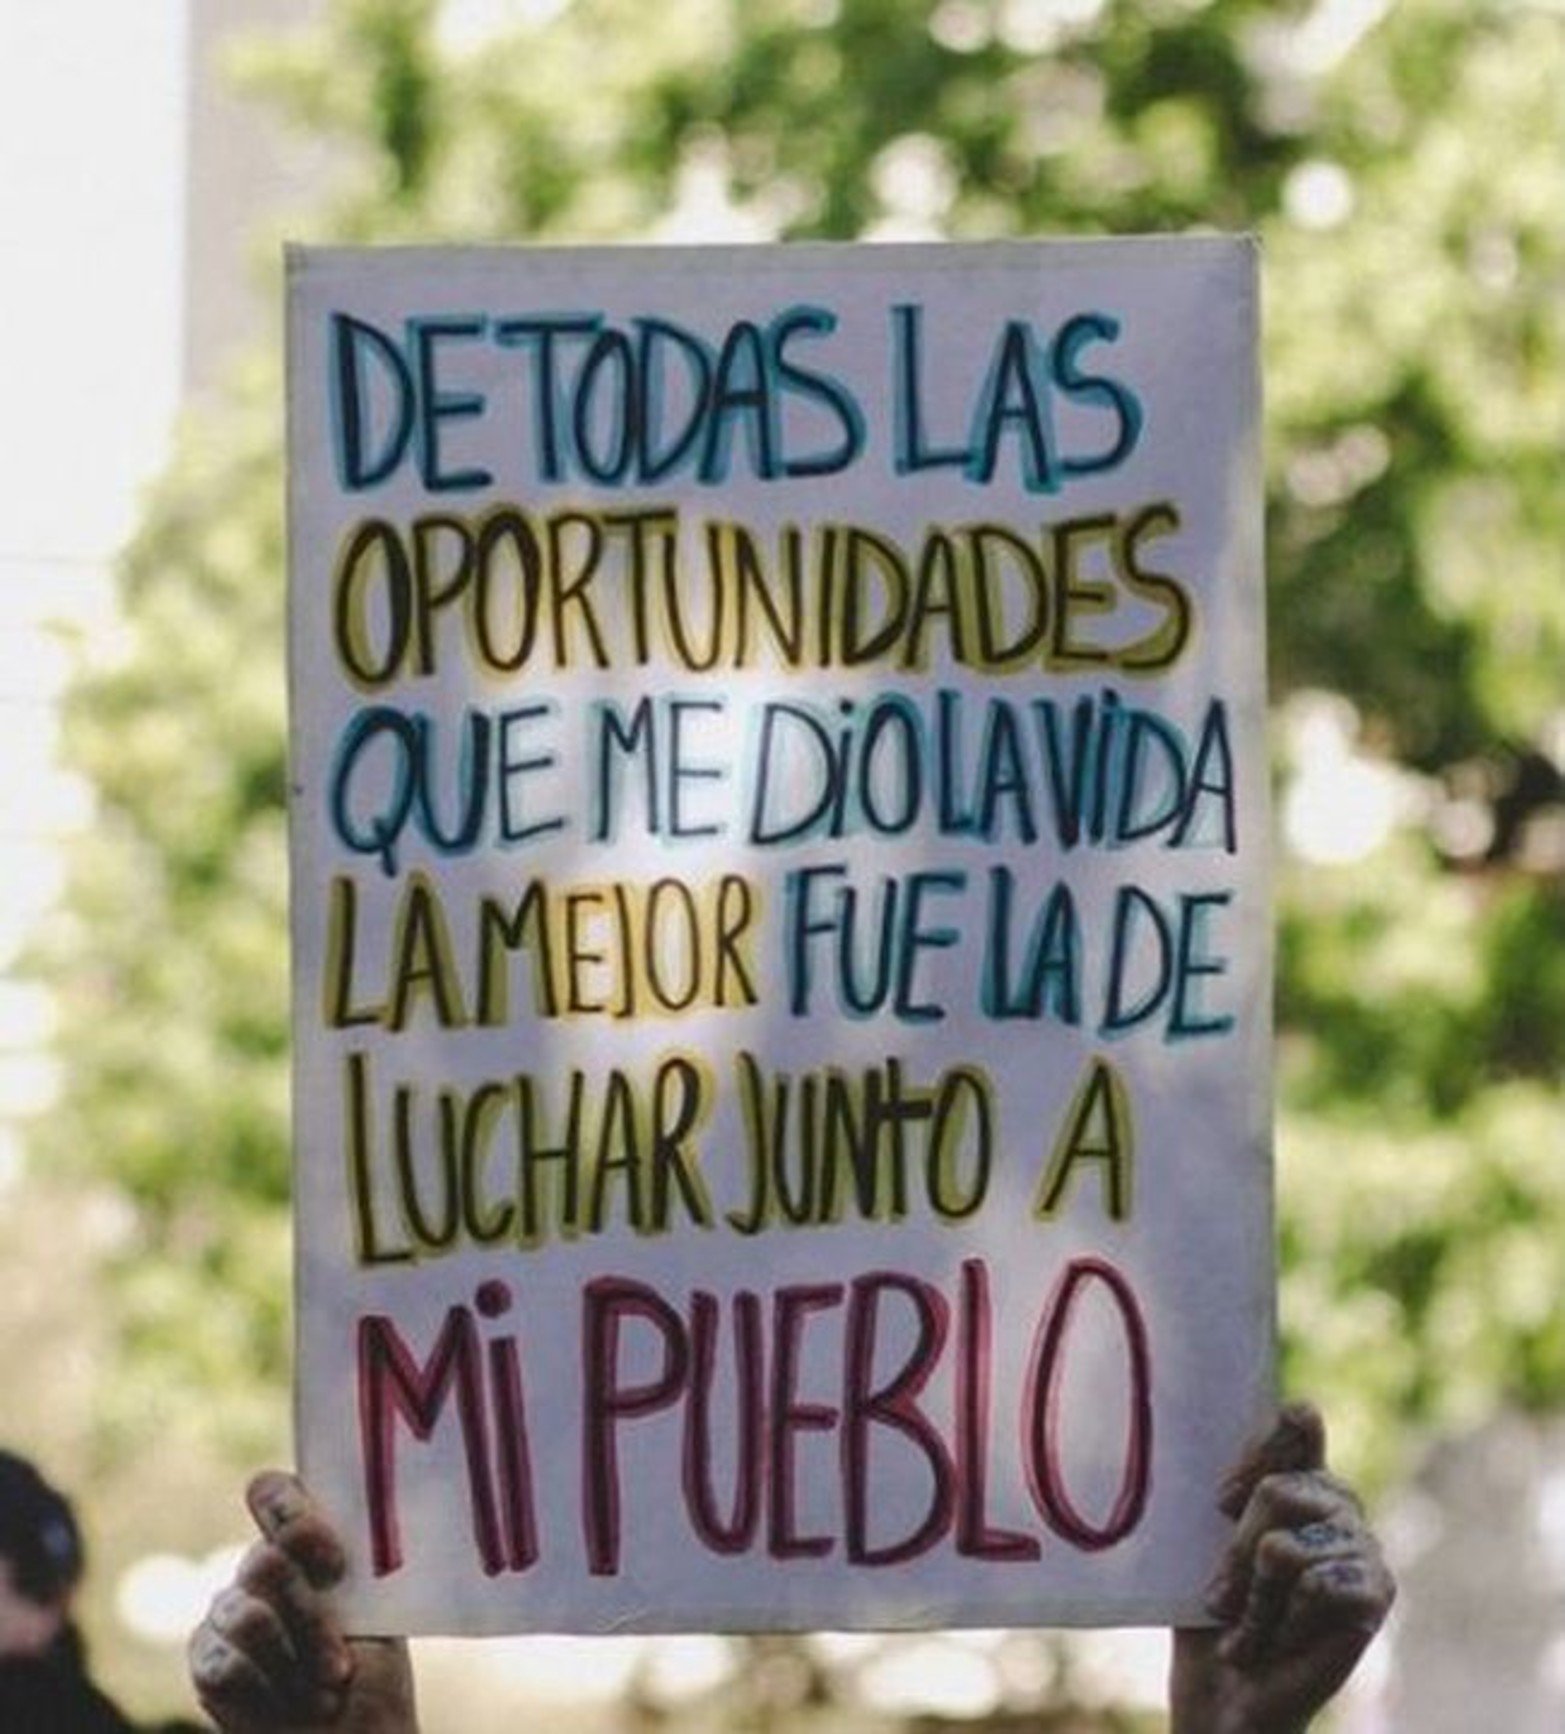 DE TODAS LAS
OPORTUNIDADES
QUE ME DiO LA ViDA
LA MEJOR FUE LA DE
LUCHAR JUNTO A
Mi PUEBLO